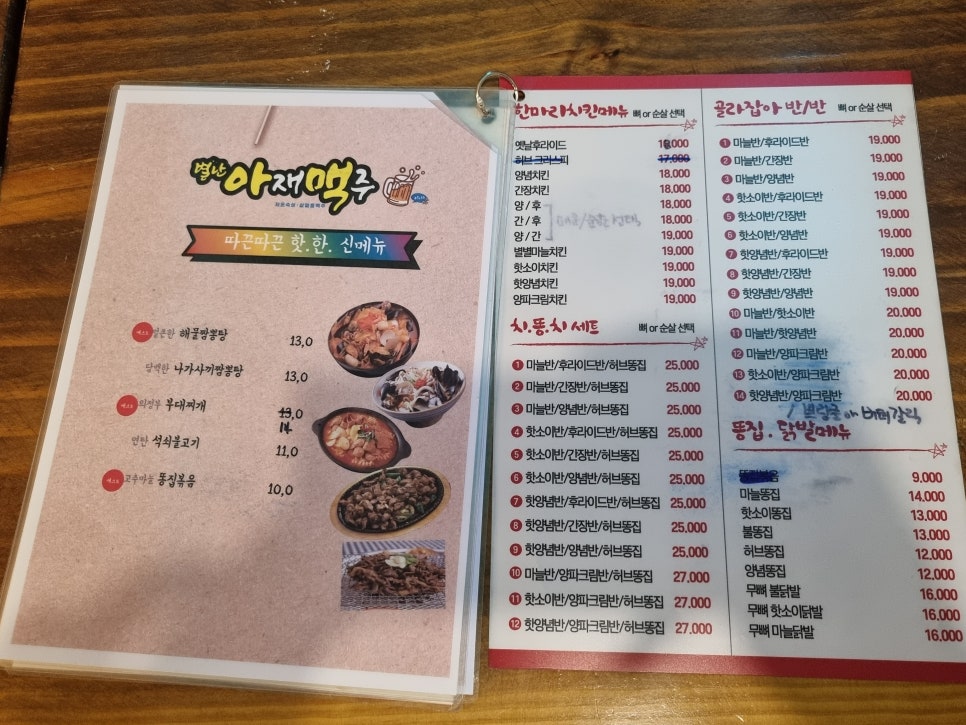 별난 아재맥주
따끈따끈 핫.한. 신메뉴
베스트 얼큰한 해물짬뽕탕 13,0
담백한 나가사끼짬뽕탕 13,0
베스트 의정부 부대찌개 13,0
14
연탄 석쇠불고기 11,0
베스트 고추마늘 똥집볶음 10,0
한마리치킨메뉴 뼈 or 순살 선택
옛날후라이드 18,000
허브 크리스피 17,000
양념치킨 18,000
간장치킨 18,000
양 / 후 18,000
간 / 후 18,000
양 / 간 19,000
별별마늘치킨 19,000
핫소이치킨 19,000
핫양념치킨 19,000
양파크림치킨 19,000
치.똥.치 세트 뼈 or 순살 선택
1 마늘반/후라이드반/허브똥집 25,000
2 마늘반/간장반/허브똥집 25,000
3 마늘반/양념반/허브똥집 25,000
4 핫소이반/후라이드반/허브똥집 25,000
5 핫소이반/간장반/허브똥집 25,000
6 핫소이반/양념반/허브똥집 25,000
7 핫양념반/후라이드반/허브똥집 25,000
8 핫양념반/간장반/허브똥집 25,000
9 핫양념반/양념반/허브똥집 25,000
10 마늘반/양파크림반/허브똥집 27,000
11 핫소이반/양파크림반/허브똥집 27,000
12 핫양념반/양파크림반/허브똥집 27,000
골라잡아 반/반 뼈 or 순살 선택
1 마늘반/후라이드반 19,000
2 마늘반/간장반 19,000
3 마늘반/양념반 19,000
4 핫소이반/후라이드반 19,000
5 핫소이반/간장반 19,000
6 핫소이반/양념반 19,000
7 핫양념반/후라이드반 19,000
8 핫양념반/간장반 19,000
9 핫양념반/양념반 19,000
10 마늘반/핫소이반 20,000
11 마늘반/핫양념반 20,000
12 마늘반/양파크림반 20,000
13 핫소이반/양파크림반 20,000
14 핫양념반/양파크림반 20,000
똥집.닭발메뉴
9.000
마늘똥집 14,000
핫소이똥집 13,000
불똥집 13,000
허브똥집 12,000
양념똥집 12,000
무뼈 불닭발 16,000
무뼈 핫소이닭발 16,000
무뼈 마늘닭발 16,000